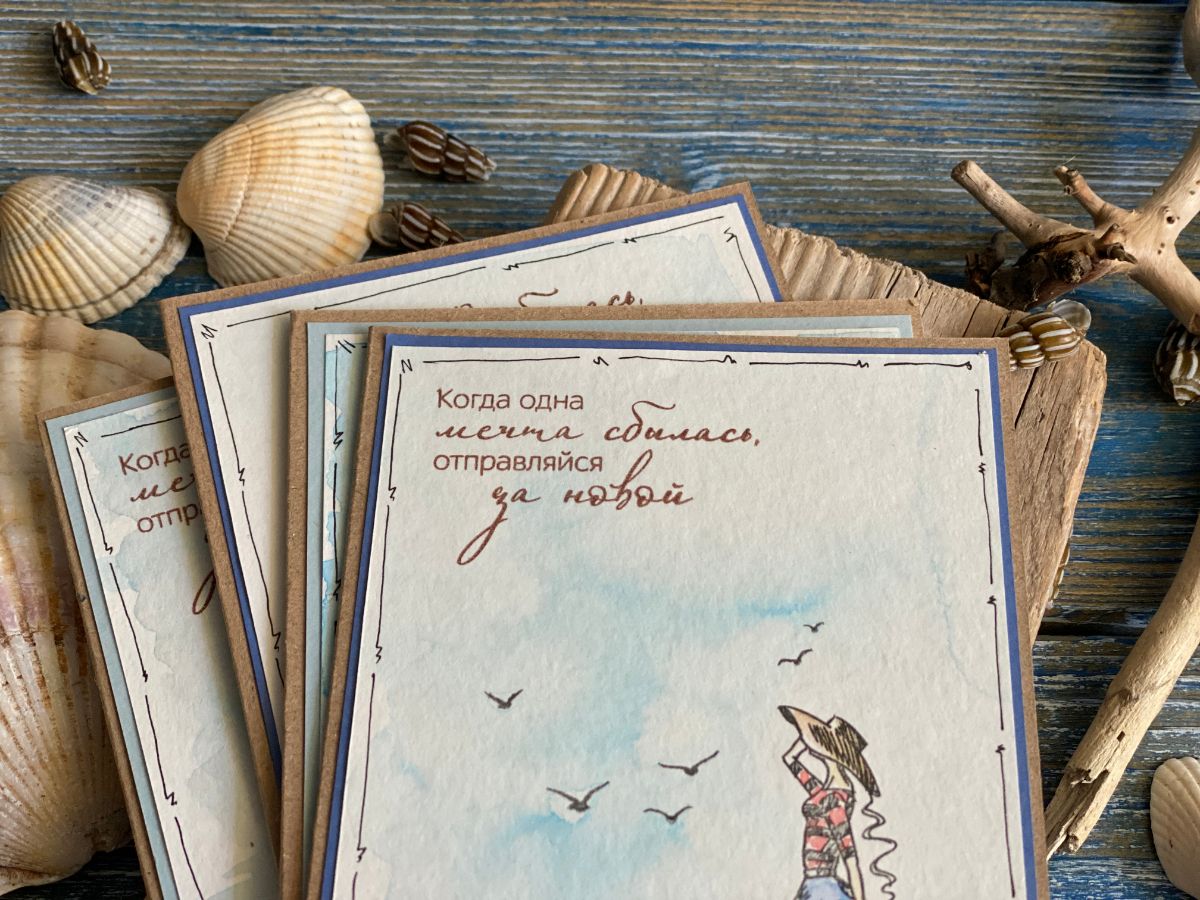 Когда одна
мечта сбылась,
отправляйся
за новой
сбылась,
Когда